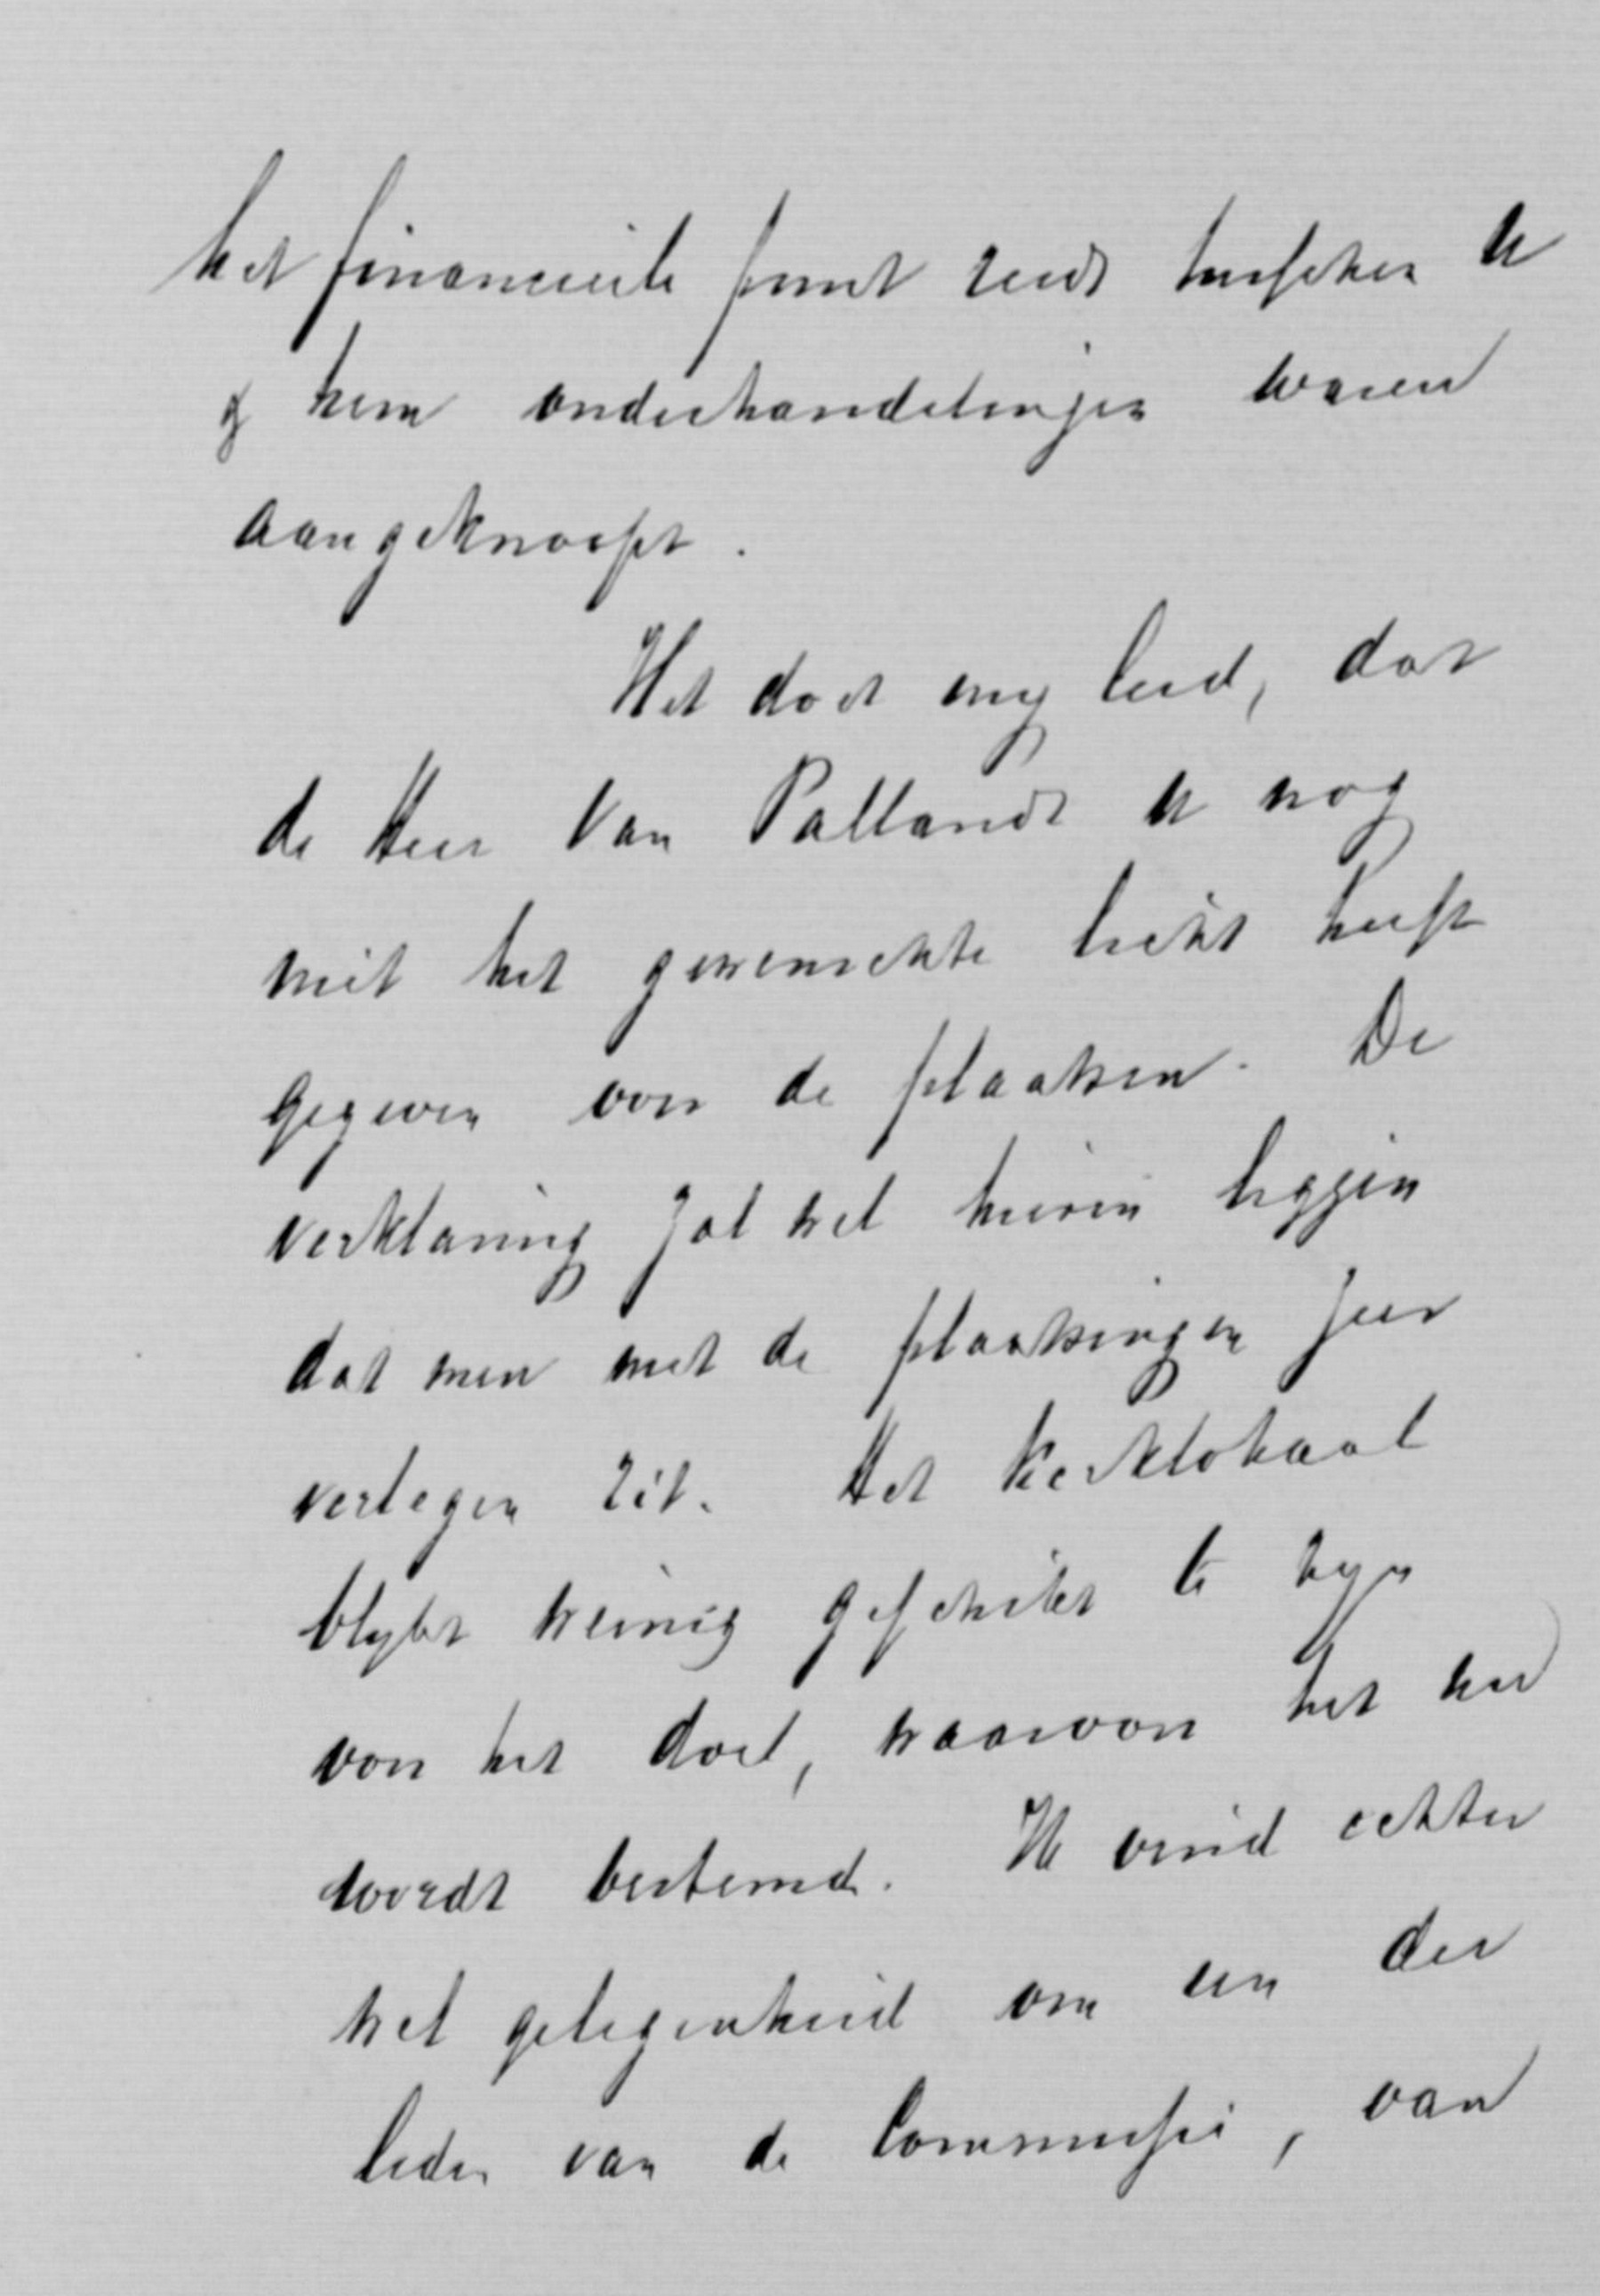 het financieele punt reeds tusschen U
of hem onderhandelingen waren
aangeknoopt.
Het doet my leed, dat
de Heer Van Pallandt U nog
niet het gewenschte licht heeft
gegeven over de plaatsen. De
verklaring zal wel hierin liggen
dat men met de plaatsingen zeer
verlegen zit. Het kerklokaal
blykt weinig geschikt te zyn
voor het doel, waarvoor het nu
wordt bestemd. Ik vind echter
wel gelegenheid om een der
leden van de Commissie, van